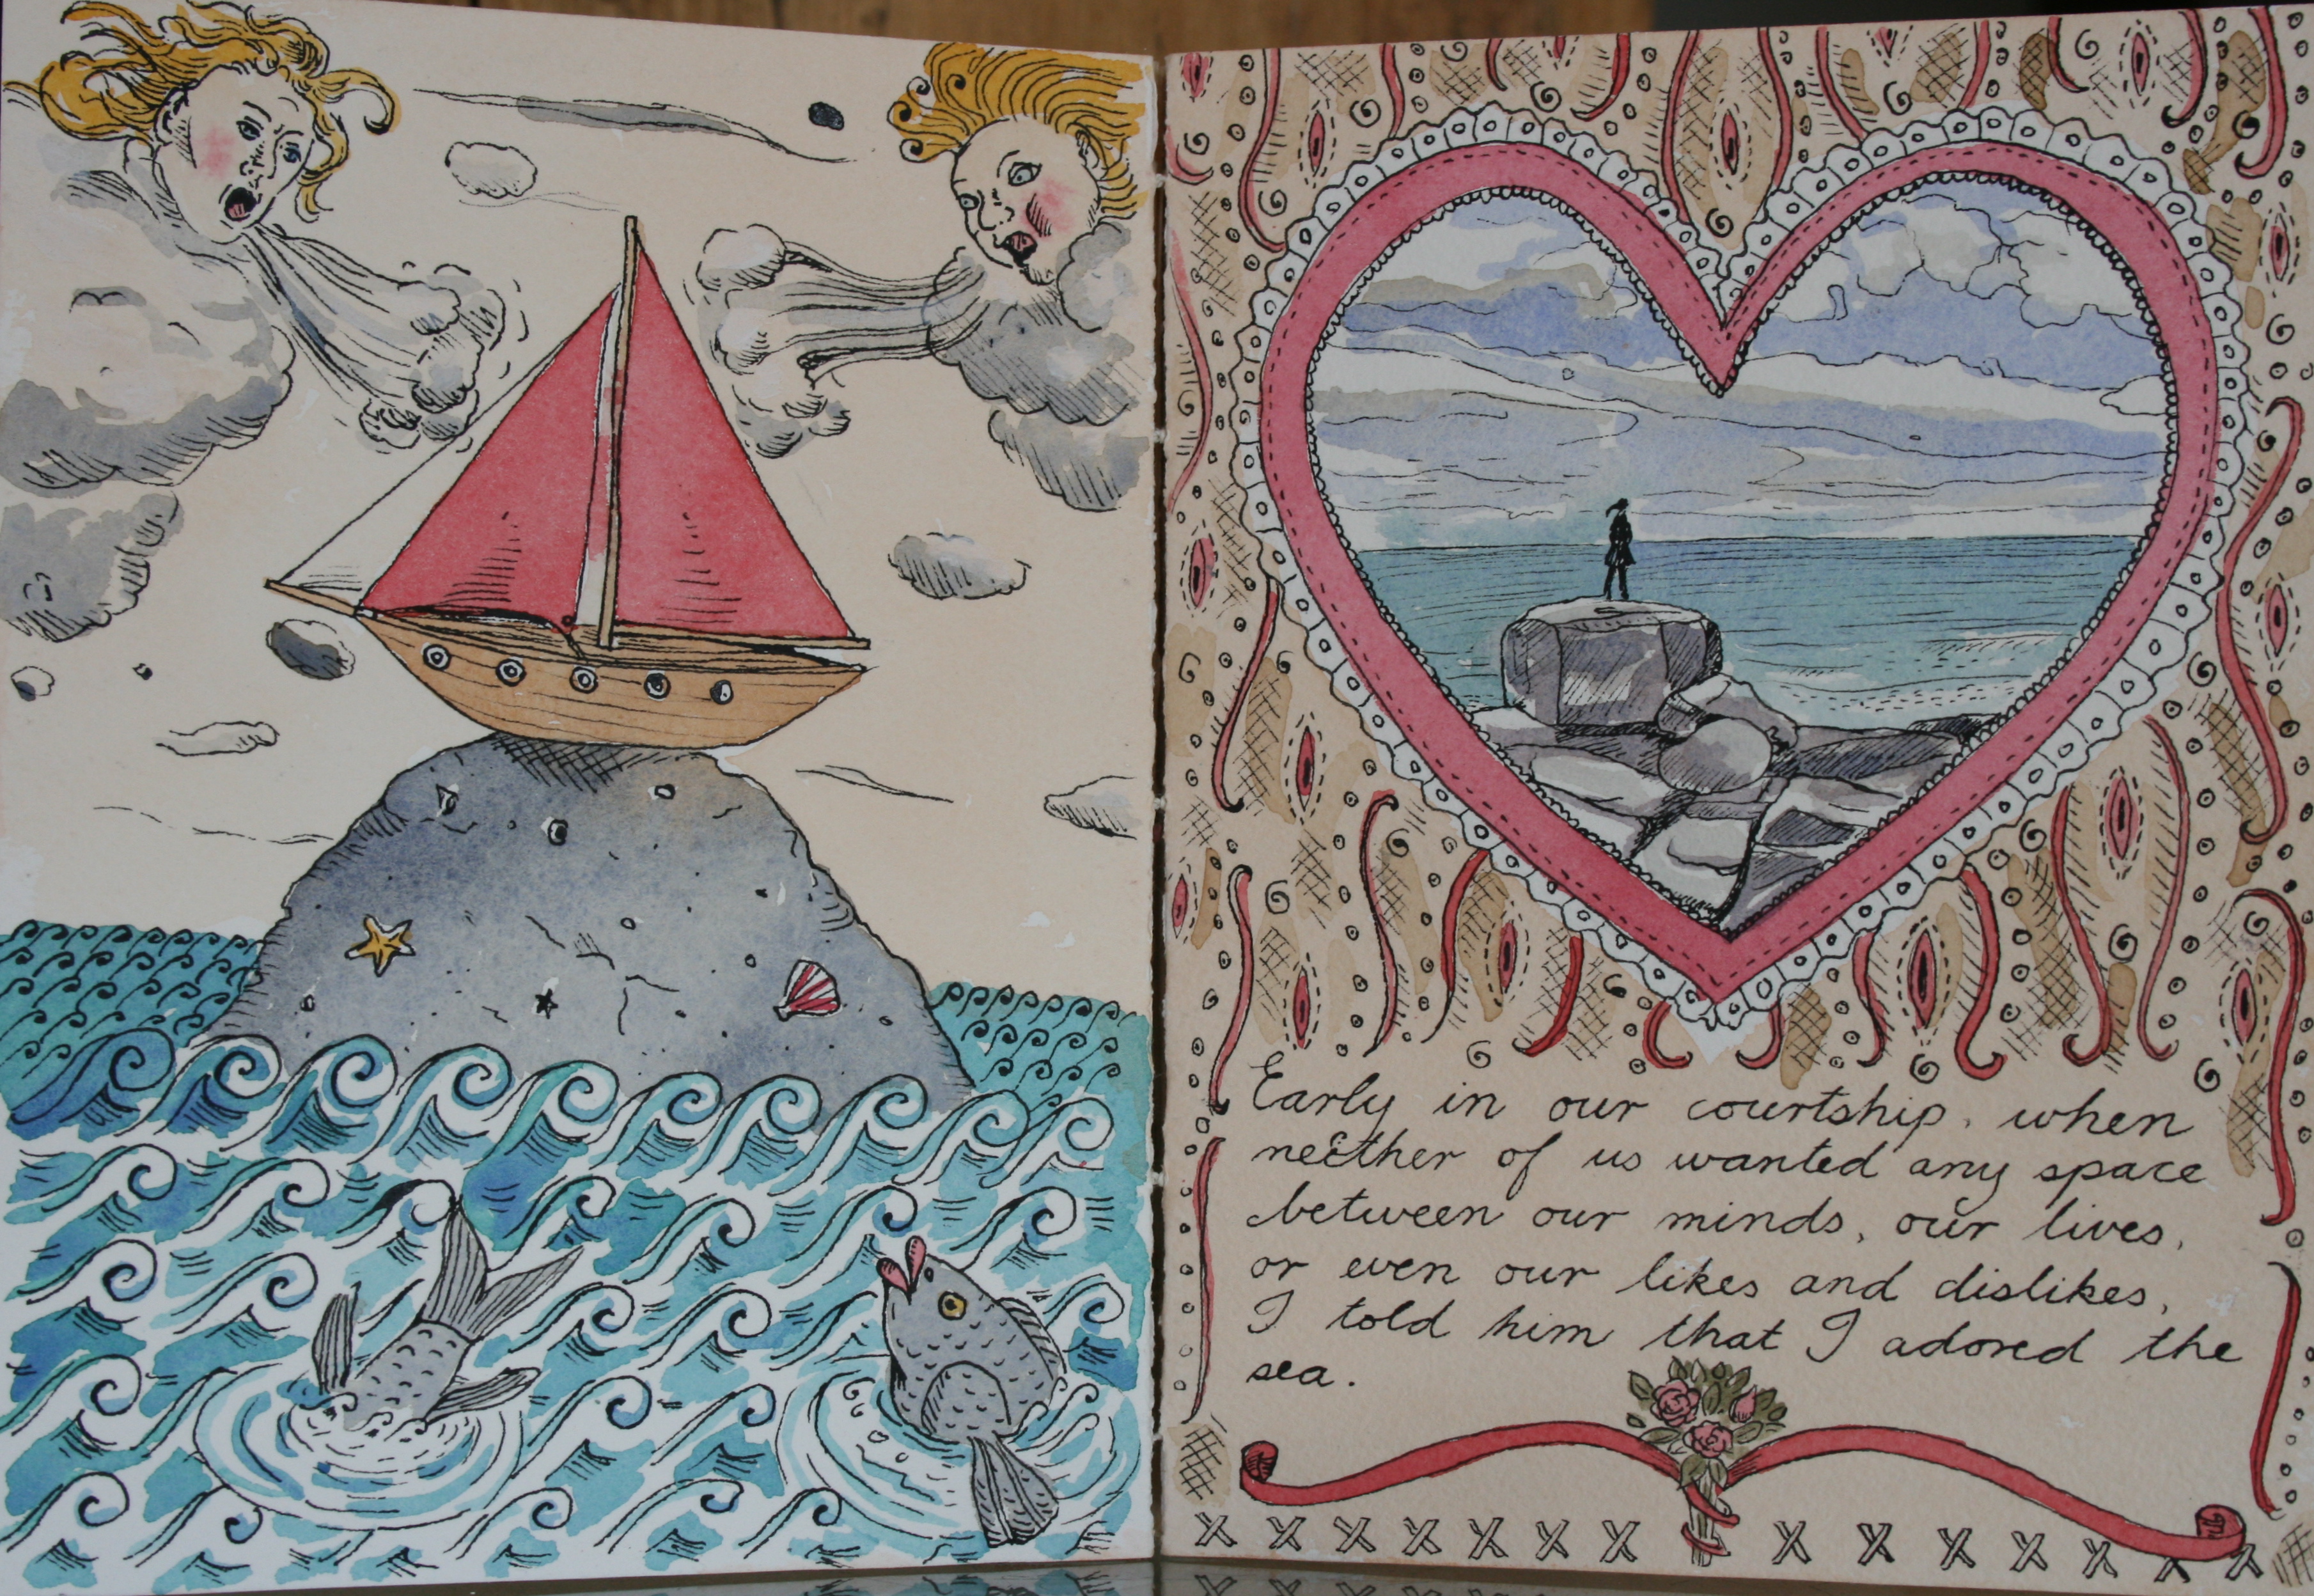 Early in our courtship, when
neither of us wanted any space
between our minds, our lives,
or even our likes and dislikes,
I told him that I adored the
sea.